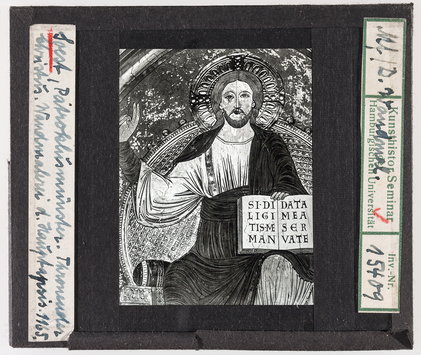 Soest, Patroklusmünster. Thronender
Christus. Wandmalerei d. Hauptapsis. 1165.
SI·DI DATA
LIGI MEA
TIS·ME SER
MAN VATE
Kunsthistor. Seminar
Hamburgische Universität
Inv.-Nr.
15409